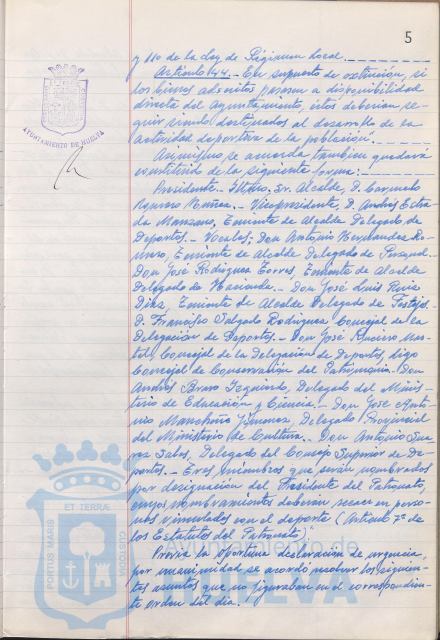 5
y 110 de la Ley de Régimen Local.
Artículo 44.- En supuesto de extinción, si
los bienes adscritos pasasen a disponibilidad
directa del Ayuntamiento, éstos deberían se-
guir siendo destinados al desarrollo de la
actividad deportiva de la población".
Asimismo se acuerda también quedará
constituido de la siguiente forma:
Presidente.- Iltmo. Sr. Alcalde, D. Carmelo
Romero - Vicepresidente, D. Andrés Estra-
da Manzano, Teniente de Alcalde Delegado de
Deportes.- Vocales: Don Antonio Hernández Ro-
mero, Teniente de Alcalde Delegado de Personal.-
Don José Rodríguez Torres, Teniente de Alcalde
Delegado de Hacienda.- Don José Luis Ruiz
Díaz, Teniente de Alcalde Delegado de Festejos.
D. Francisco Salgado Rodríguez Concejal de la
Delegación de Deportes.- Don José
Concejal de la Delegación de Deportes, digo
Concejal de Conservación del Patrimonio.- Don
Andrés Bravo Izquierdo, Delegado del Minis-
terio de Educación y Ciencia.- Don José Anto-
nio Mancheño Jiménez, Delegado Provincial
del Ministerio de Cultura.- Don Antonio
Delegado del Consejo Superior de De-
portes.- Tres miembros que serán nombrados
por designación del Presidente del Patronato,
cuyos nombramientos deberán recaer en perso-
nas vinculadas con el deporte (Artículo 7º de
los Estatutos del Patronato).
Previa la oportuna declaración de urgencia,
por unanimidad se acordó resolver los siguien-
tes asuntos que no figuraban en el correspondien-
te orden del día.
AYUNTAMIENTO DE HUELVA
PORTUS MARIS ET TERRÆ CUSTODIA
HUELVA